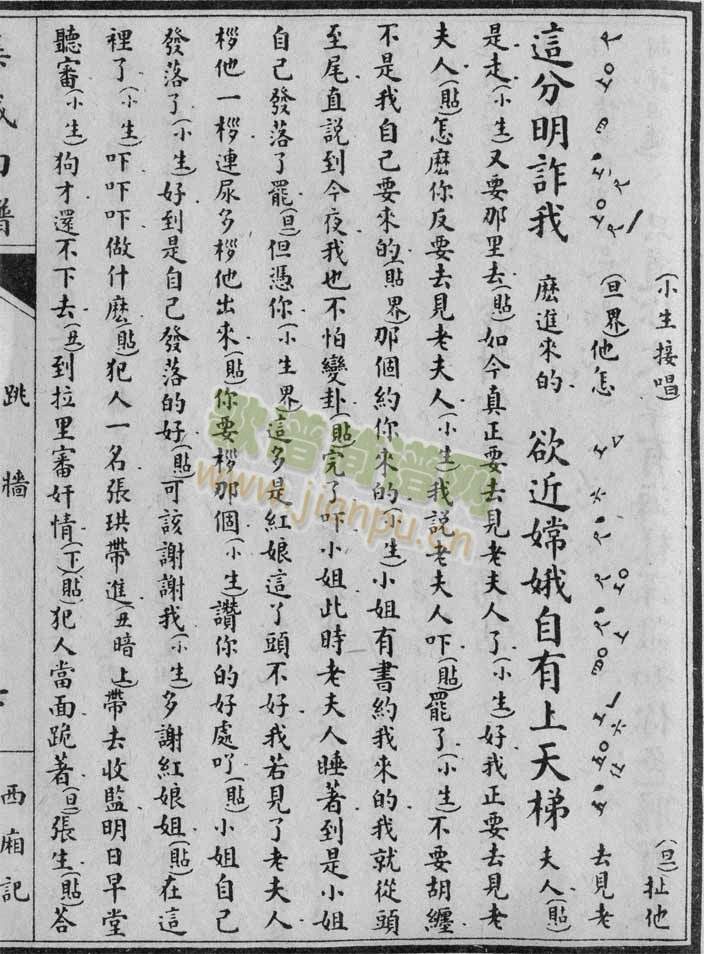 (小生接唱)
(旦)扯他
(旦界)他怎
去見老
這分明詐我
麽進來的
欲近嫦娥自有上天梯
夫人(貼)
是走(小生)又要那里去(貼)如今真正要去見老夫人了(小生)好我正要去見老
夫人(貼)怎麽你反要去見老夫人(小生)我説老夫人吓(貼)罷了(小生)不要胡纏
不是我自己要來的(貼界)那個約你來的(小生)小姐有書約我來的我就從頭
至尾直説到今夜我也不怕變卦(貼)完了吓小姐此時老夫人睡著到是小姐
自己發落了罷(旦)但憑你(小生界)這多是紅娘這丫頭不好我若見了老夫人
拶他一拶連尿多拶他出來(貼)你要拶那個(小生)讚你的好處吖(貼)小姐自己
發落了(小生)好到是自己發落的好(貼)可該謝謝我(小生)多謝紅娘姐(貼)在這
裡了(小生)吓吓吓做什麽(貼)犯人一名張珙帶進(丑暗上)帶去收監明日早堂
聽審(小生)狗才還不下去(丑)到拉里審奸情(下)(貼)犯人當面跪著(旦)張生(貼)荅
集成曲譜
跳牆
西廂記
歌譜簡譜網
www.jianpu.cn